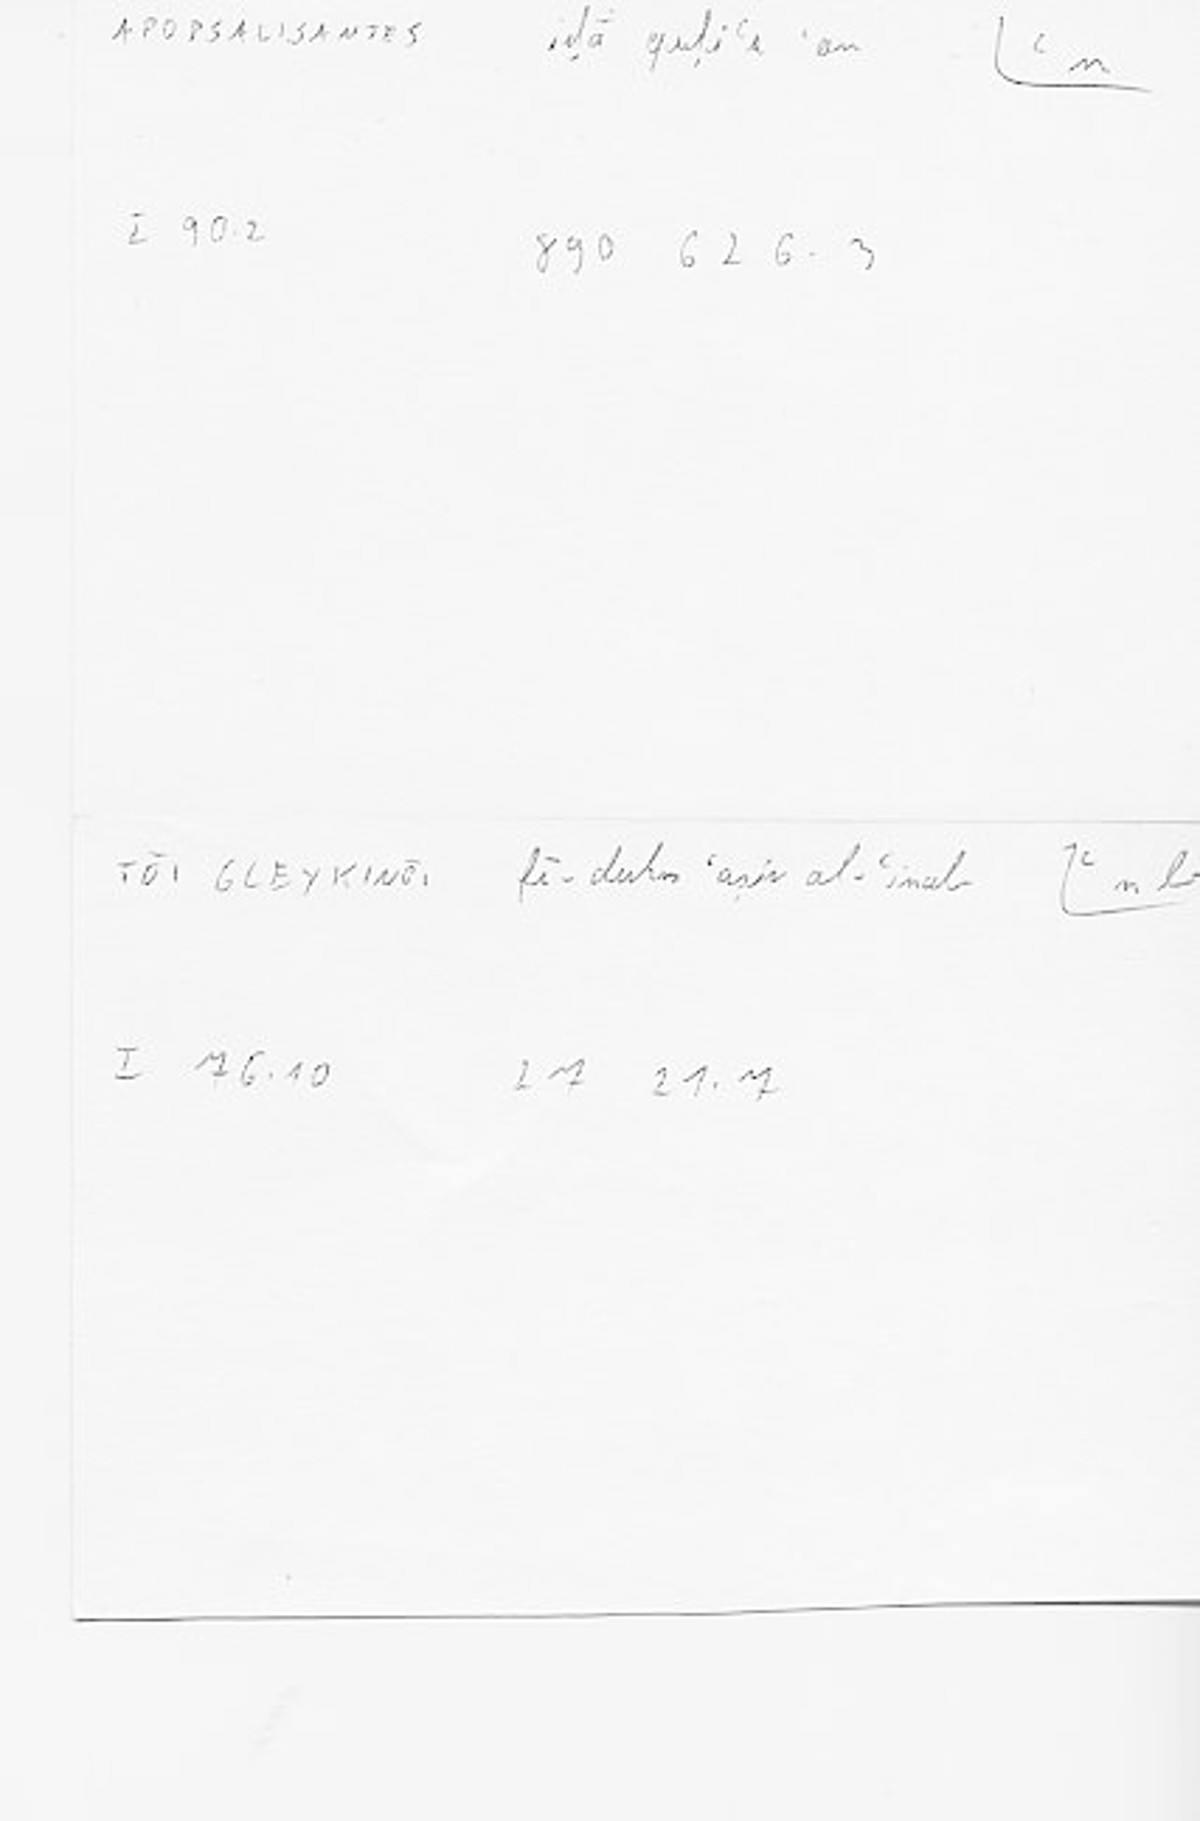 APOPSALISANTES iḏā quṭiʿa ʿan ʿn
I 90.2 890 626.3
TŌI GLEYKINŌI fī-duhn ʿaṣīr al-ʿinab ʿnb
I 76.10 27 21.7